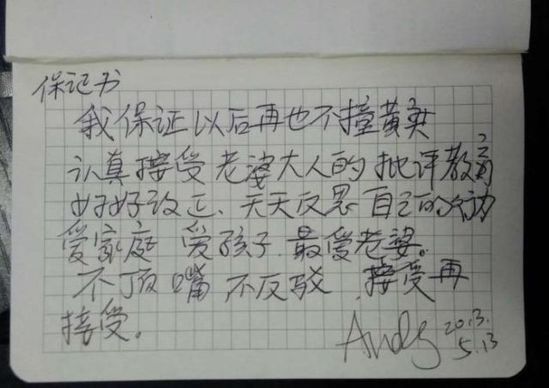 保证书
我保证以后再也不撞黄
认真接受老婆大人的批评教育
好好改正、天天反思自己的
爱家庭 爱孩子.最爱老婆。
不顶嘴 不反驳.接受再
接受。
Andy 2013.
5.13